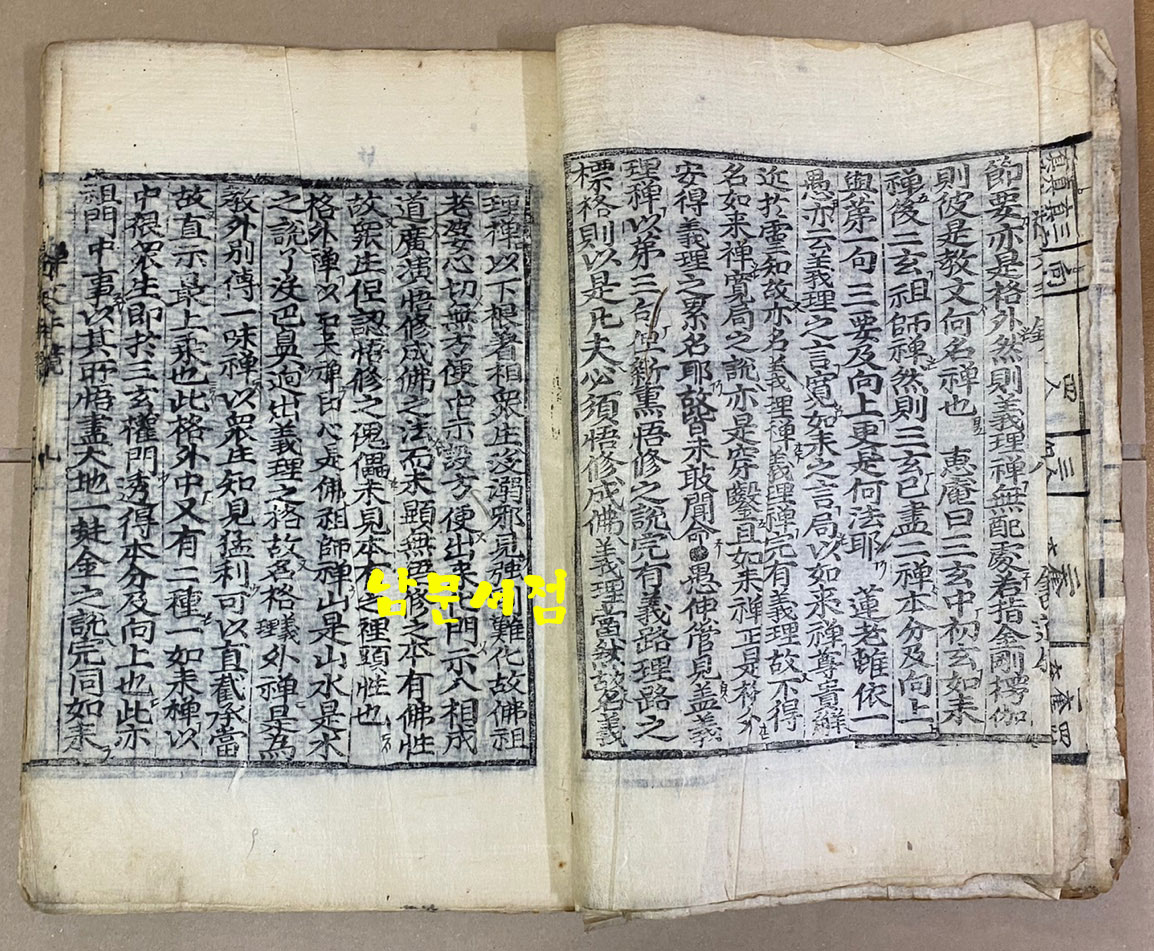 節要亦是格外然則義理禪無配處若指金剛楞伽
則彼是教文何名禪也 惠庵曰三玄中初玄如来
禪後二玄祖師禪然則三玄已盡二禪本分及向上
與第一句三要及向上更是何法耶 蓮老雖依一
愚亦云義理之言寬如来之言局以如来禪尊貴解
近於虛知故亦名義理禪義理禪完有義理故不得
名如来禪寬局之說亦是穿鑿且如来禪正是格外
安得義理之累名耶故皆未敢聞命 愚伸管見盖義
理禪以第三句但新熏悟修之說完有義路理路之
標格則以是凡夫必須悟修成佛義理當然故名義
理禪以下根著相衆生沒溺邪見強 難化故佛祖
老婆心切無方便中示設方便出来 門示八相成
道廣演悟修成佛之法而未顯無悟修之本有佛性
故衆生但認悟修之傀儡未見本有之裡頭性也
格外禪以如来禪即心是佛祖師禪山是山水是水
之說了沒巴鼻逈出義理之格故名格義理外禪是為
教外別傳一味禪以衆生知見猛利可以直截承當
故直示最上乘也此格外中又有二種一如来禪以
中根衆生即於三玄權門透得本分及向上也此亦
祖門中事以其所悟盡大地一挺金之說完同如来
남문서점